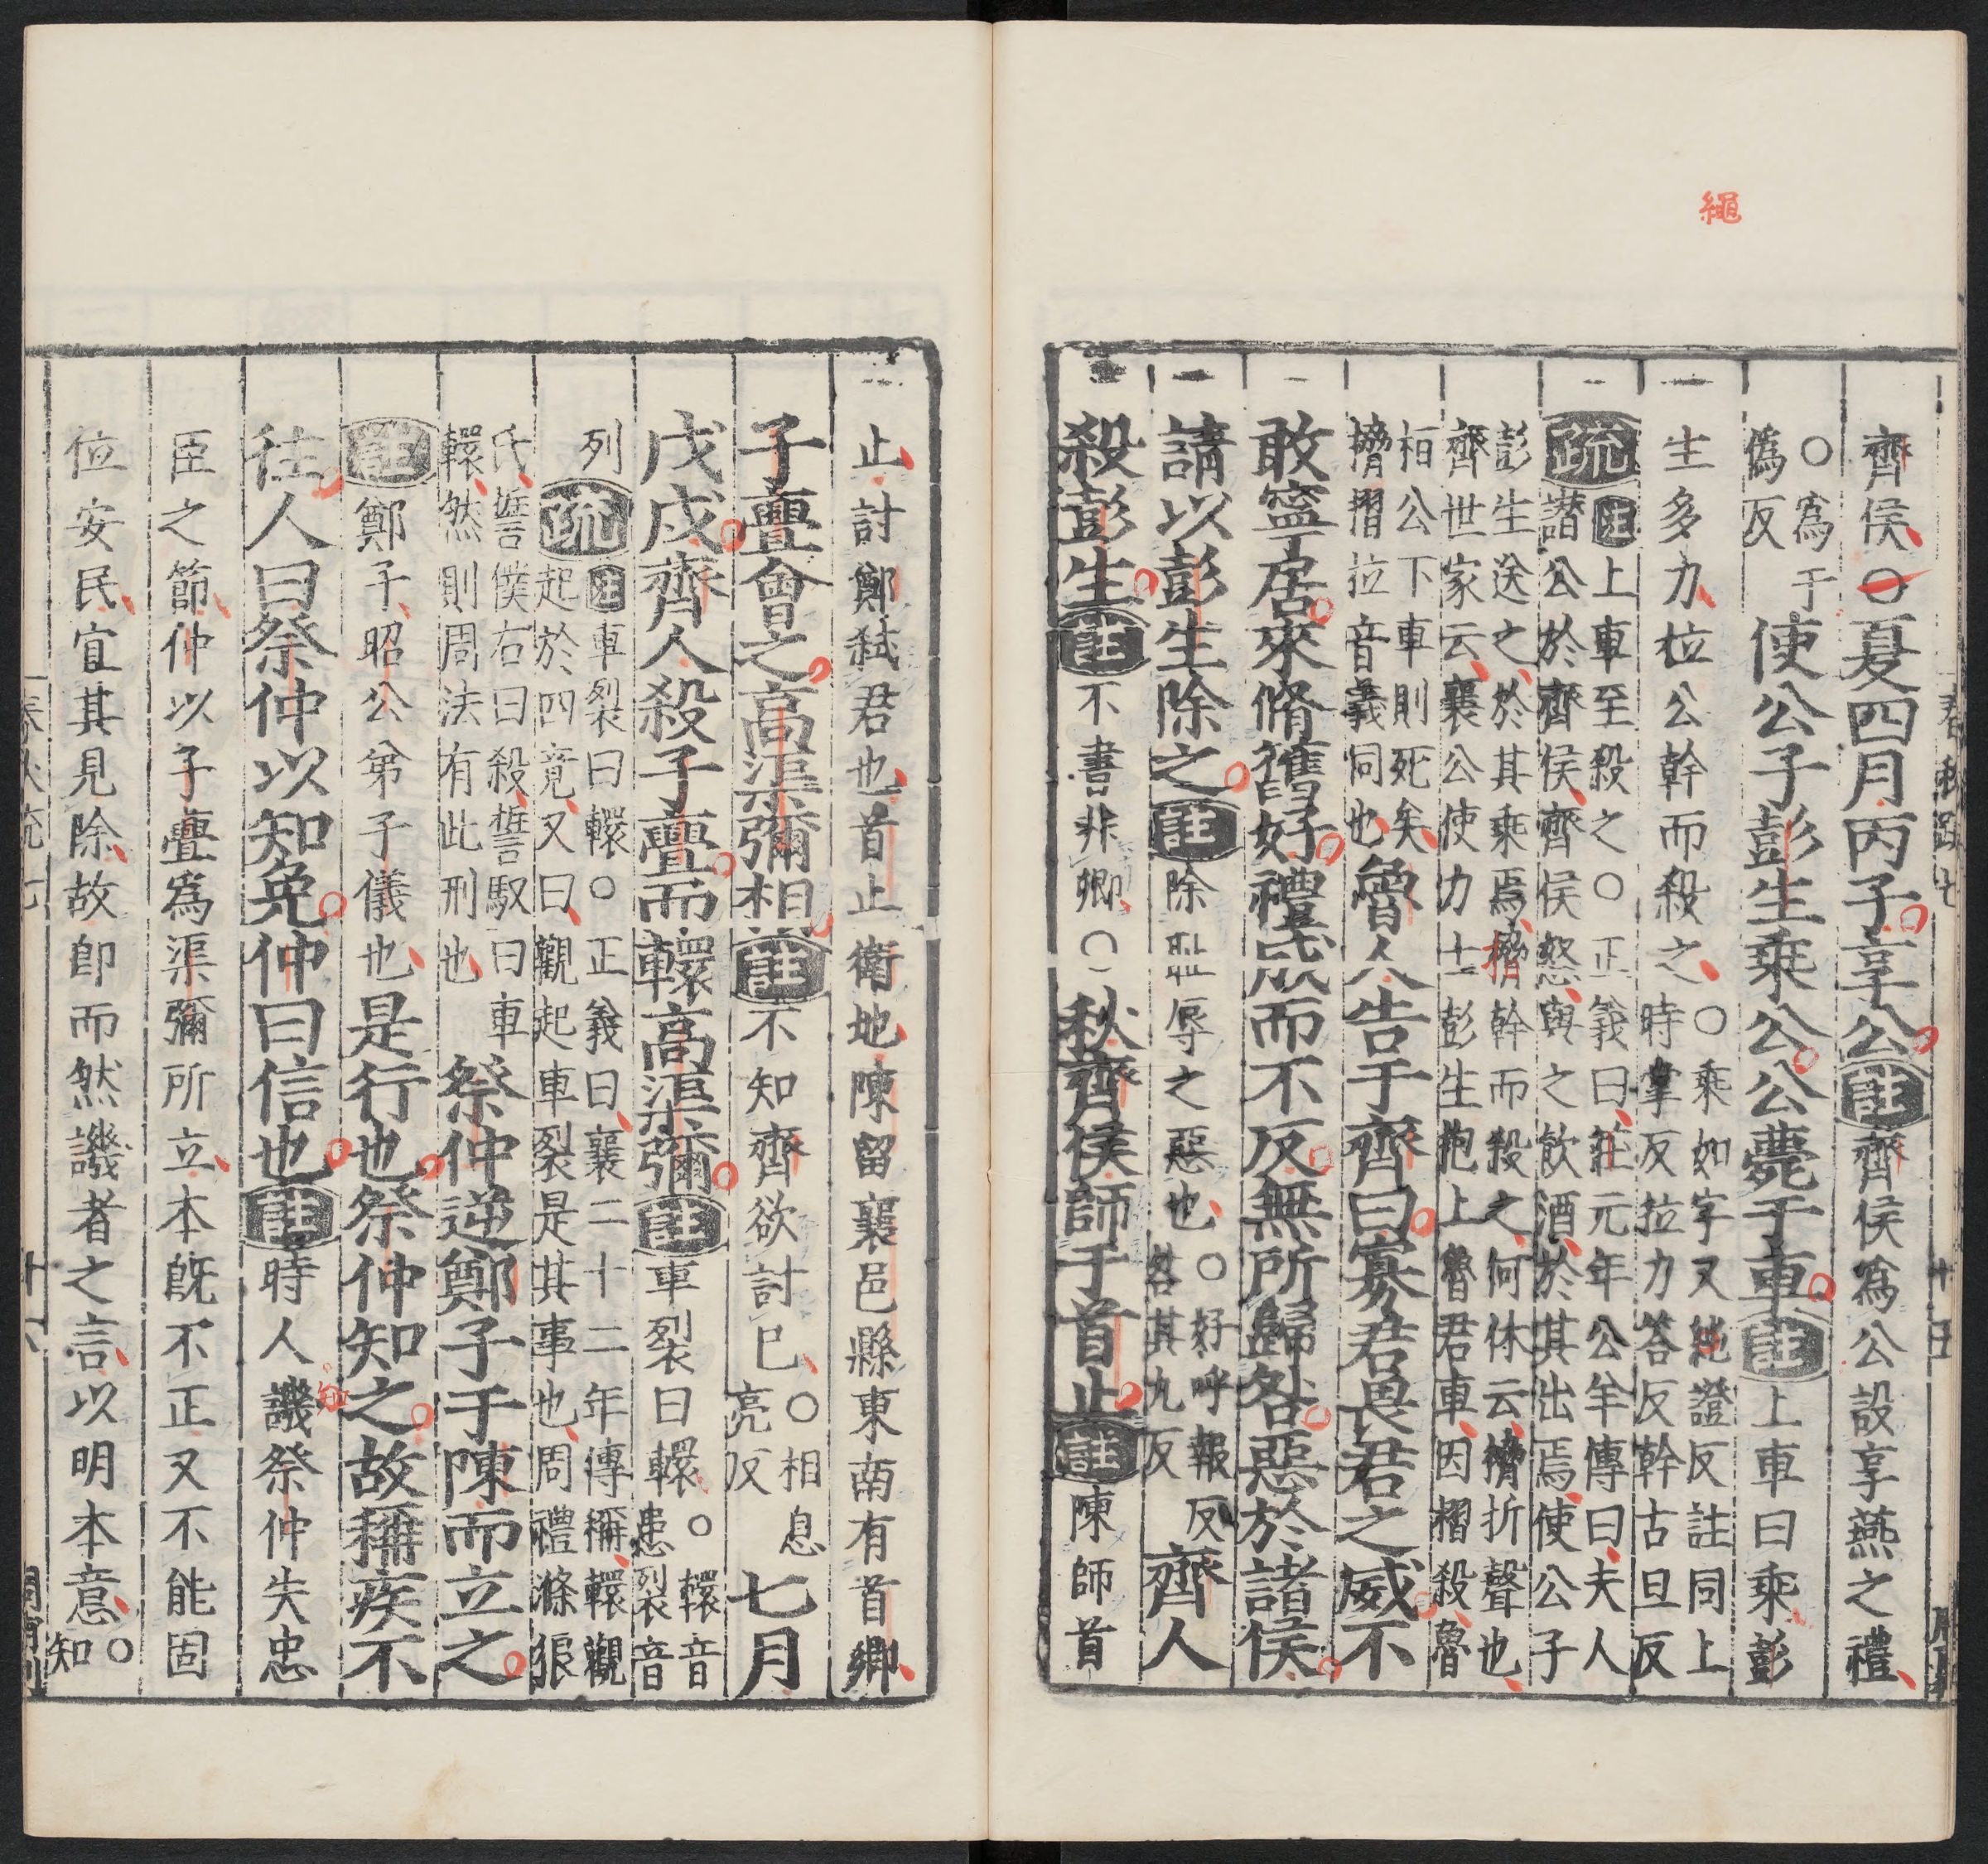 繩
齊侯○夏四月丙子享公註齊侯爲公設享燕之禮
○爲于
僞反
使公子彭生乘公公薨于車註上車曰乘彭
生多力拉公幹而殺之
○乘如字又繩證反註同上
時掌反拉力答反幹古旦反
疏
註上車至殺之○正義曰莊元年公羊傳曰夫人
譖公於齊侯齊侯怒與之飲酒於其出焉使公子
彭生送之於其乘焉搚幹而殺之何休云搚折聲也
齊世家云襄公使力士彭生抱上魯君車因摺殺魯
桓公下車則死矣
搚摺拉音義同也
魯人告于齊曰寡君畏君之威不
敢寧居來脩舊好禮成而不反無所歸咎惡於諸侯
請以彭生除之註除恥辱之惡也
○好呼報反
咎其九反
齊人
殺彭生註不書非卿○秋齊侯師于首止註陳師首
止討鄭弑君也首止衛地陳留襄邑縣東南有首鄉
子亹會之高渠彌相註不知齊欲討己
○相息
亮反
七月
戊戌齊人殺子亹而轘高渠彌註車裂曰轘
○轘音
患裂音
列
疏
註車裂曰轘○正義曰襄二十二年傳稱轘觀
起於四竟又曰觀起車裂是其事也周禮滌狼
氏誓僕右曰殺誓馭曰車
轘然則周法有此刑也
祭仲逆鄭子于陳而立之
註鄭子昭公弟子儀也是行也祭仲知之故稱疾不
往人曰祭仲以知免仲曰信也註時人譏祭仲失忠
知
臣之節仲以子亹爲渠彌所立本旣不正又不能固
位安民宜其見除故卽而然譏者之言以明本意
○
知